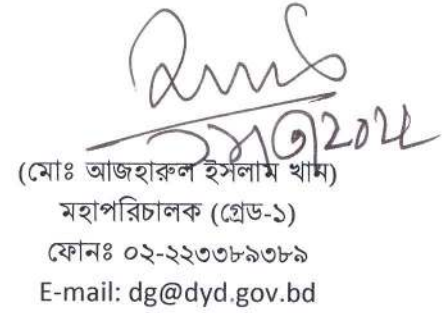 (মোঃ আজহারুল ইসলাম খান)
মহাপরিচালক (গ্রেড-১)
ফোনঃ ০২-২২৩৩৮৯৩৮৯
E-mail: dg@dyd.gov.bd